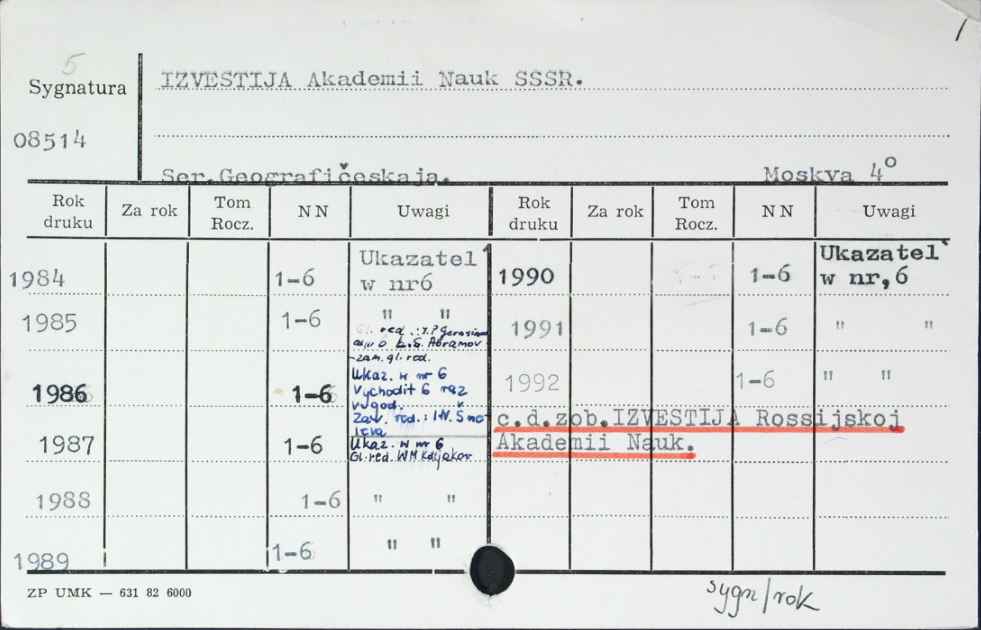 /
5
Sygnatura
IZVESTIJA Akademii Nauk SSSR.
08514
Ser.Geografičeskaja. Moskva 4°
Rok druku Za rok Tom Rocz. NN Uwagi Rok druku Za rok Tom Rocz. NN Uwagi
1984 1-6 Ukazatel'
w nr6
1985 1-6 " "
Gl. red.: I.P. Gerasimow
L.S. Abramov
-zam. gl. rod.
1986 1-6 Ukaz. w nr 6
Vychodit 6 raz
v god.
1987 1-6 Ukaz. w nr 6
Gl. red.
1988 1-6 " "
1989 1-6 " "
1990 1-6 Ukazatel'
w nr,6
1991 1-6 " "
1992 1-6 " "
c.d.zob.IZVESTIJA Rossijskoj
Akademii Nauk.
ZP UMK — 631 82 6000
sygn/rok